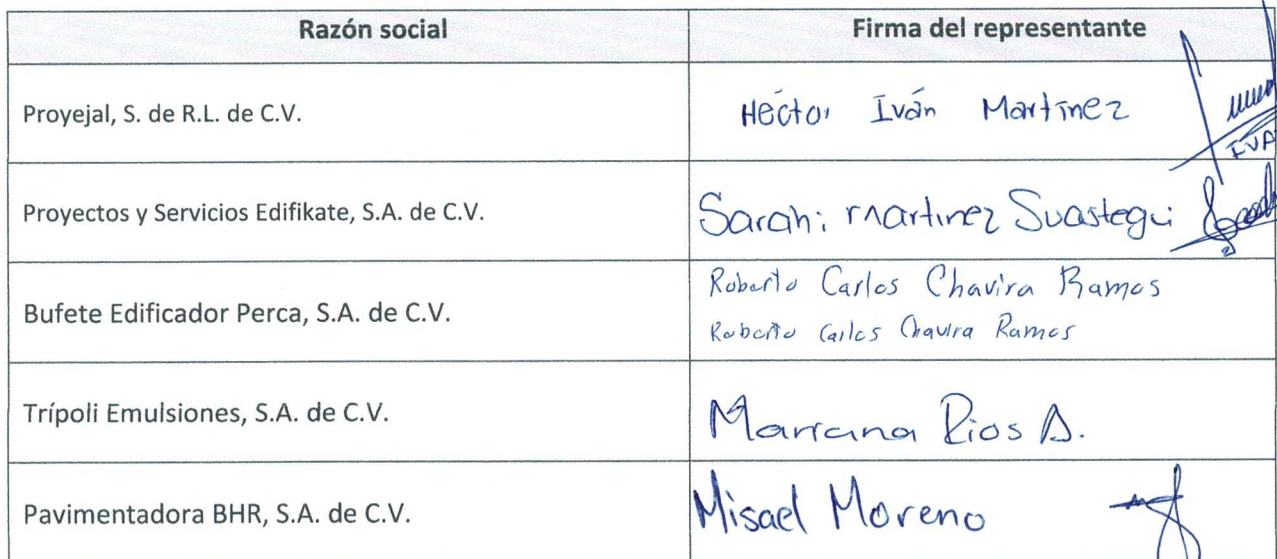 Razón social
Firma del representante
Proyejal, S. de R.L. de C.V.
Héctor Iván Martínez
IVA
Proyectos y Servicios Edifikate, S.A. de C.V.
Sarahi martinez Suastegui
Bufete Edificador Perca, S.A. de C.V.
Roberto Carlos Chavira Ramos
Roberto Carlos Chavira Ramos
Trípoli Emulsiones, S.A. de C.V.
Mariana Rios A.
Pavimentadora BHR, S.A. de C.V.
Misael Moreno